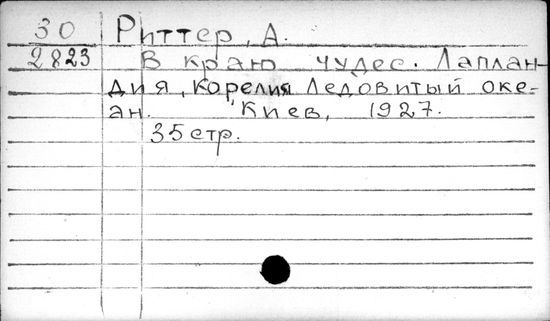 30 Риттер, А.
2823 В краю чудес. Лаплан-
дия, Корелия Ледовитый оке-
ан. Киев, 1927.
35 стр.